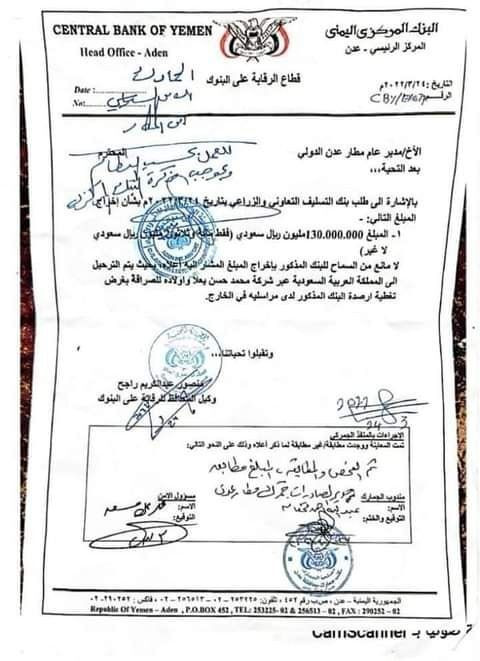 CENTRAL BANK OF YEMEN
Head Office - Aden
البنك المركزي اليمني
المركز الرئيسي - عدن
قطاع الرقابة على البنوك
Date :
No:
التاريخ: ٢٠٢٢/٣/٢٤م
الأخ/مدير عام مطار عدن الدولي
المحترم
بعد التحية،،،
للعمل بحسب النظام
بالإشارة الى طلب بنك التسليف التعاوني والزراعي بتاريخ ٢٠٢٢/٣/٢٤م بشأن إخراج
المبلغ التالي: -
١- المبلغ 130.000.000مليون ريال سعودي (فقط مائة وثلاثون مليون ريال سعودي
لا غير)
لا مانع من السماح للبنك المذكور بإخراج المبلغ المشار اليه أعلاه، بحيث يتم الترحيل
الى المملكة العربية السعودية عبر شركة محمد حسن بعلا وأولاده للصرافة بغرض
تغطية ارصدة البنك المذكور لدى مراسليه في الخارج.
وتقبلوا تحياتنا،،،
منصور عبدالكريم راجح
وكيل المحافظ للرقابة على البنوك
2022
24 3
الاجراءات بالمنفذ الجمركي
تمت المعاينة ووجدت مطابقة/غير مطابقة لما ذكر أعلاه وذلك على النحو التالي:
تم الفحص والمعاينة، المبلغ مطابق
مندوب الجمارك
مسؤول الامن
الاسم:
الاسم:
التوقيع والختم:
التوقيع:
الجمهورية اليمنية - عدن ، ص.ب رقم ٤٥٢ ، تلفون: ٢٥٣٢٢٥-٠٢ & ٢٥٦٥١٣-٠٢ ، فاكس : ٢٩٠٢٥٢-٠٢
Republic Of Yemen - Aden , P.O.BOX 452 , TEL: 253225- 02 & 256513 - 02 , FAX : 290252 - 02
ضوئيا بـ CamScanner